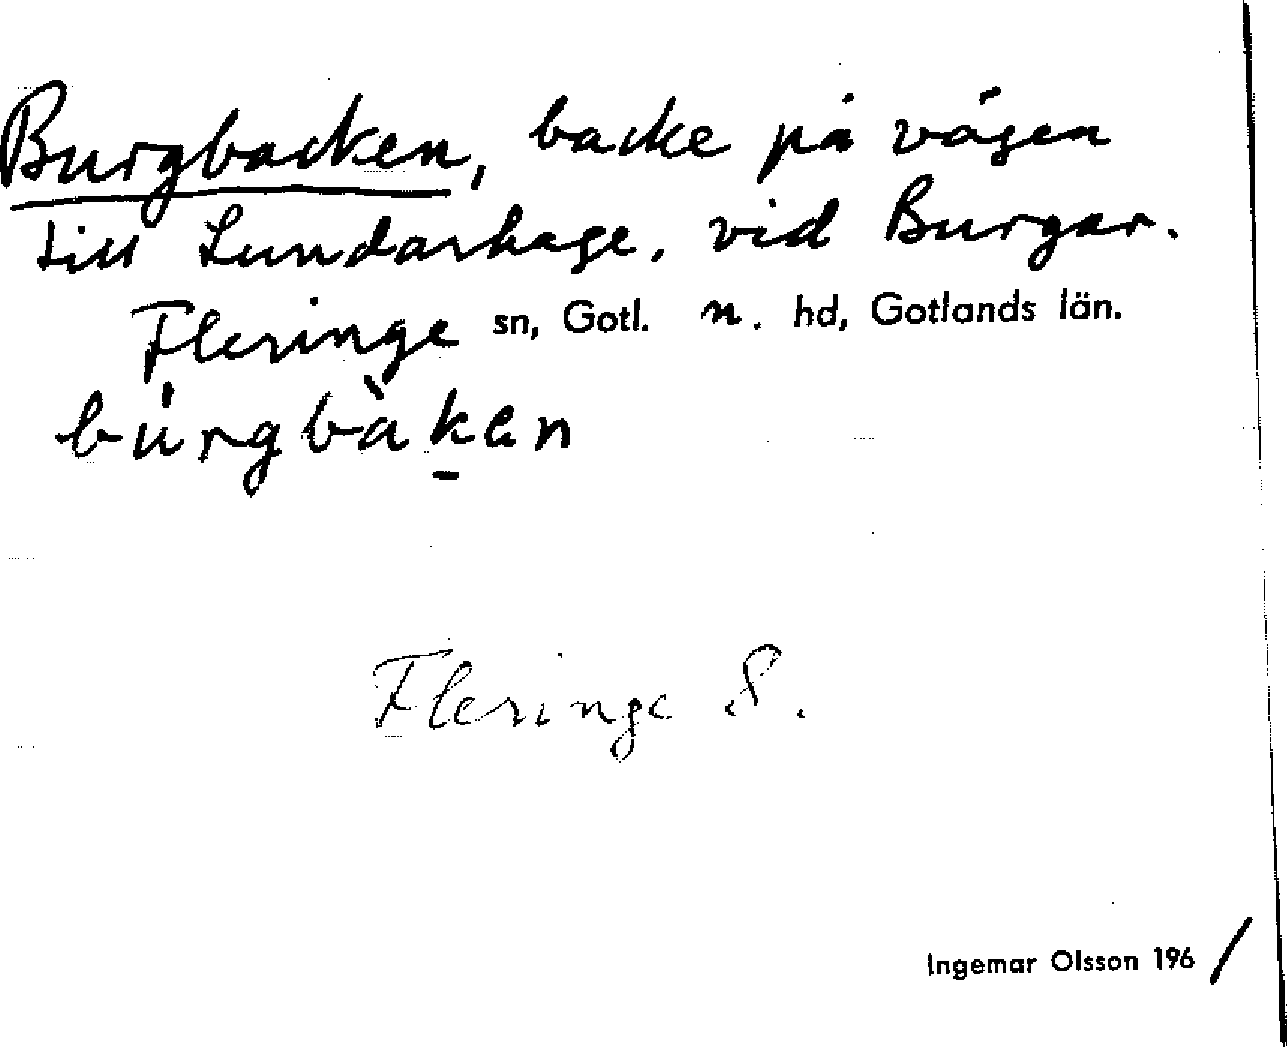 Burgbacken, backe på vägen
till Lundarhage, vid Burgar.
Fleringe sn, Gotl. n. hd, Gotlands län.
búrgbàken
Fleringe S.
Ingemar Olsson 1961